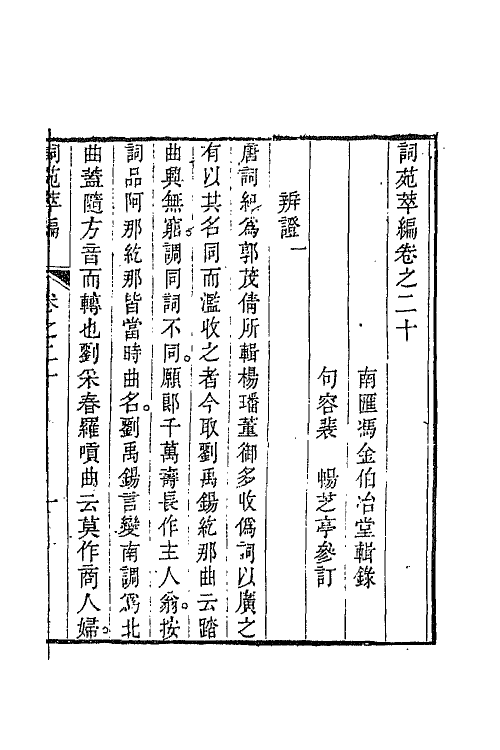 詞苑萃編卷之二十
南匯馮金伯冶堂輯錄
句容裴　暢芝亭參訂
辨證一
唐詞紀為郭茂倩所輯楊璠董御多收僞詞以廣之
有以其名同而濫收之者今取劉禹錫紇那曲云踏
曲興無窮調同詞不同。願郎千萬壽長作主人翁。按
詞品阿那紇那皆當時曲名。劉禹錫言變南調爲北
曲蓋隨方音而轉也劉采春羅嗊曲云莫作商人婦。
詞苑萃編　卷之二十　一